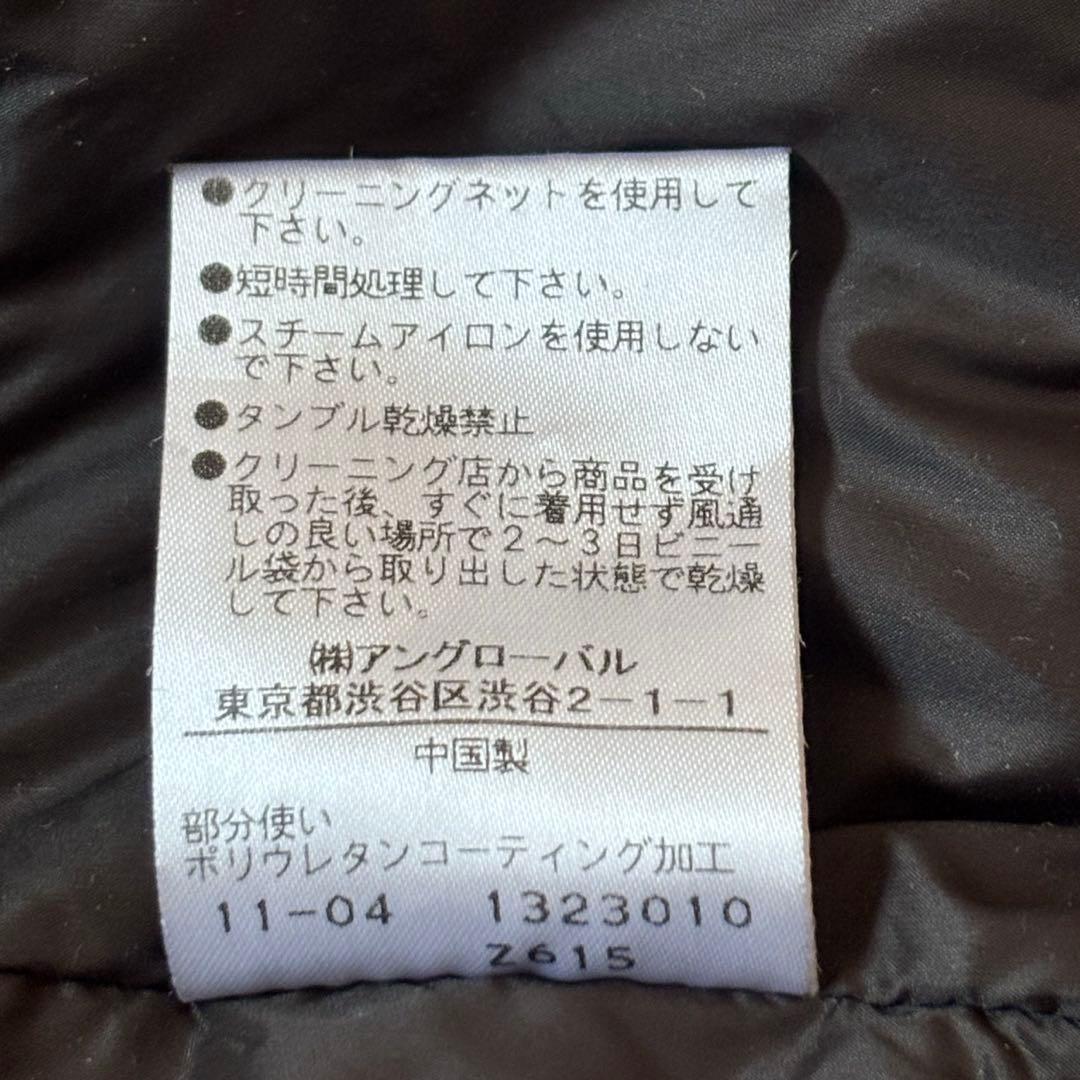 ●クリーニングネットを使用して
下さい。
●短時間処理して下さい。
●スチームアイロンを使用しない
で下さい。
●タンブル乾燥禁止
●クリーニング店から商品を受け
取った後、すぐに着用せず風通
しの良い場所で2〜3日ビニー
ル袋から取り出した状態で乾燥
して下さい。
㈱アングローバル
東京都渋谷区渋谷2-1-1
中国製
部分使い
ポリウレタンコーティング加工
11-04 1323010
Z615